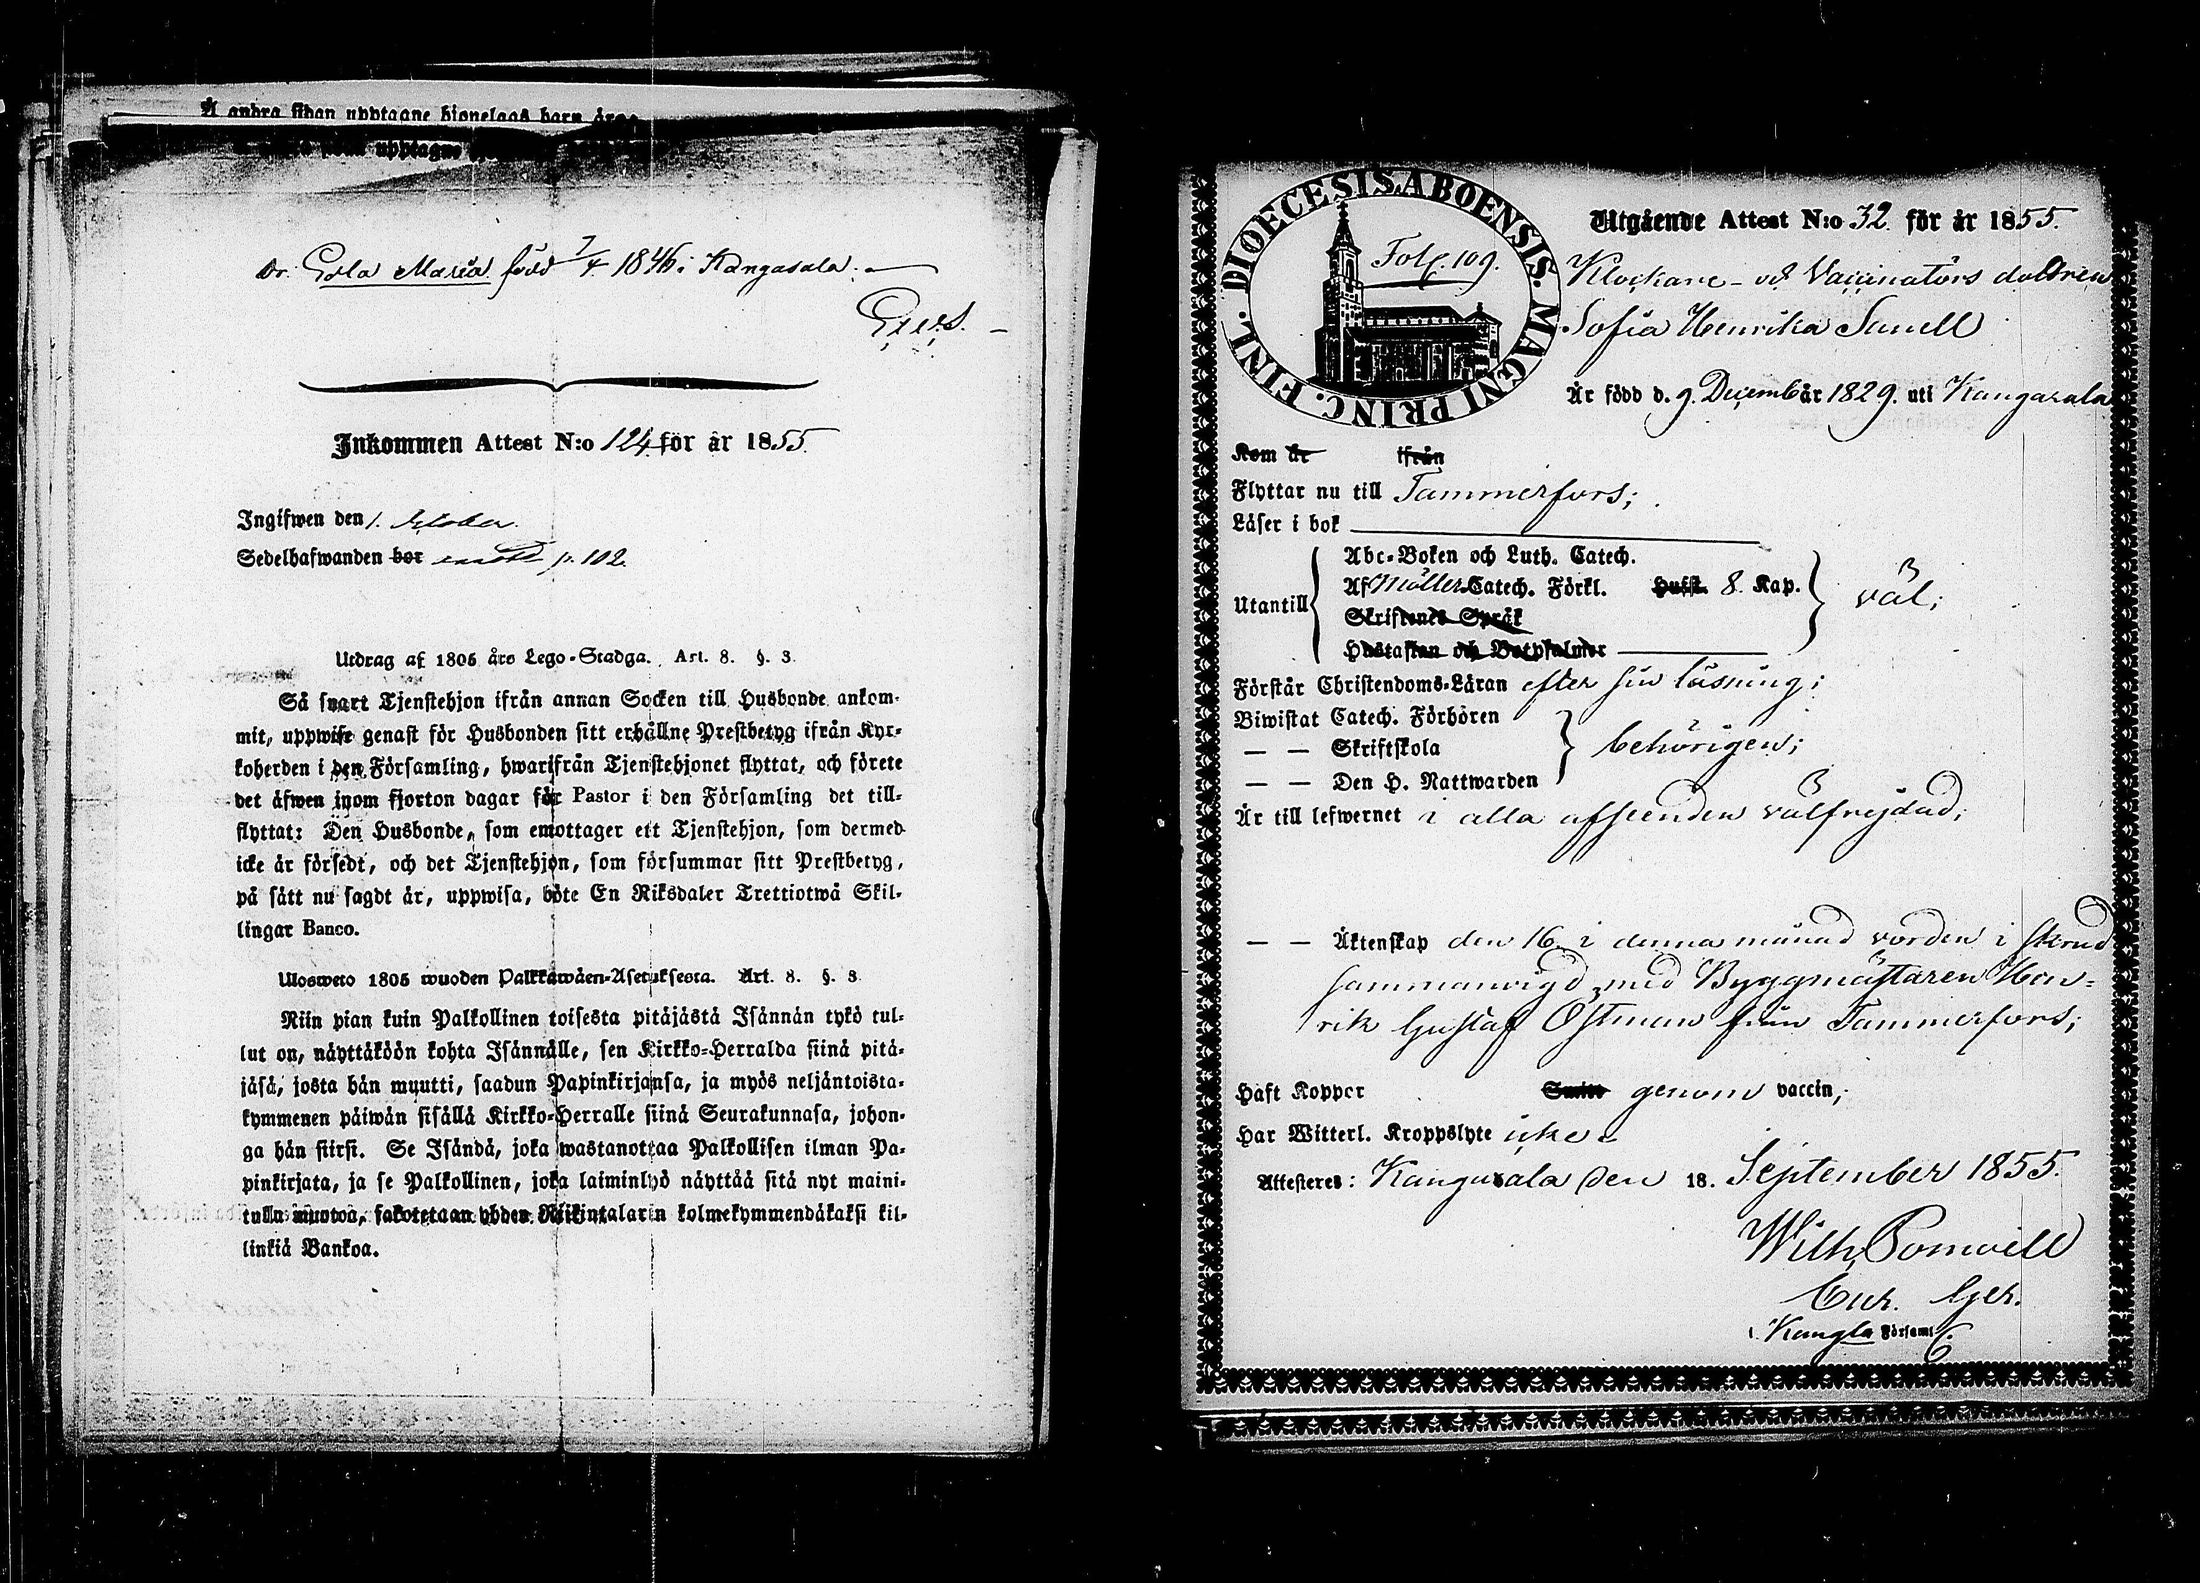 Å andra sidan upptagne hjonelags barn äro
upptagne
Dr: Eola Maria född 7/4 1846 i Kangasala.
Inkommen Attest N:o 124 för år 1855.
Ingifwen den 1. October
Sedelhafwanden bor p. 102.
Utdrag af 1805 års Lego-Stadga. Art. 8. §. 3.
Så snart Tjenstehjon ifrån annan Socken till Husbonde ankom-
mit, uppwise genast för Husbonden sitt erhållne Prestbetyg ifrån Kyr-
koherden i den Församling, hwarifrån Tjenstehjonet flyttat, och förete
det äfwen inom fjorton dagar för Pastor i den Församling det till-
flyttat: Den Husbonde, som emottager ett Tjenstehjon, som dermed
icke är försedt, och det Tjenstehjon, som försummar sitt Prestbetyg,
på sätt nu sagdt är, uppwisa, böte En Riksdaler Trettiotwå Skil-
lingar Banco.
Ulosweto 1805 wuoden Palkkawäen-Asetuksesta. Art. 8. §. 3
Niin pian kuin Palkollinen toisesta pitäjästä Isännän tykö tul-
lut on, näyttäköön kohta Isännälle, sen Kirkko-Herralda siinä pitä-
jäsä, josta hän muutti, saadun Papinkirjansa, ja myös neljäntoista-
kymmenen päiwän sisällä Kirkko-Herralle siinä Seurakunnasa, johon-
ga hän siirsi. Se Isändä, joka wastanottaa Palkollisen ilman Pa-
pinkirjata, ja se Palkollinen, joka laiminlyö näyttää sitä nyt maini-
tulla muotoa, sakotetaan yhden Riikintalarin kolmekymmendäkaksi kil-
linkiä Bankoa.
DIOECESIS ABOENSIS. MAGNI PRINC. FINL.
Fol. 109.
Utgående Attest N:o 32. för år 1855.
Klockare- och Vaccinatörs dottren
Sofia Henrika Sanell
Är född d. 9. December 1829. uti Kangasala
Kom år ifrån
Flyttar nu till Tammerfors;
Läser i bok
Utantill
Abc-Boken och Luth. Catech.
Af Möllers Catech. Förkl. Husst. 8. Kap.
väl;
Skriftenes Språk
Hustaflan och Botpsalmer
Förstår Christendoms-Läran efter sin läsning;
Biwistat Catech. Förhören
— — Skriftskola
behörigen;
— — Den H. Nattwarden
Är till lefwernet i alla afseenden välfrejdad;
— — Äktenskap den 16 i denna månad vorden i Skrud
sammanvigd med Byggmästaren Hen-
rik Gustaf Östman från Tammerfors;
Haft Koppor genom vaccin;
Har Witterl. Kroppslyte icke.
Attesteres: Kangasala den 18. September 1855.
Wilh. Pomoell
i Kangla Församl.